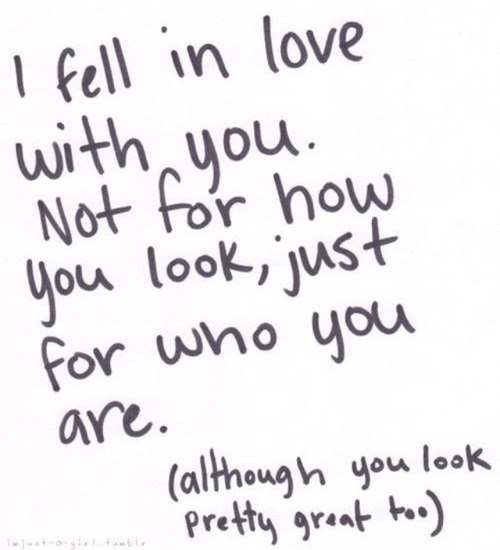 I fell in love
with you.
Not for how
you look, just
for who you
are.
(although you look
pretty great too)
imjust-a-girl.tumblr